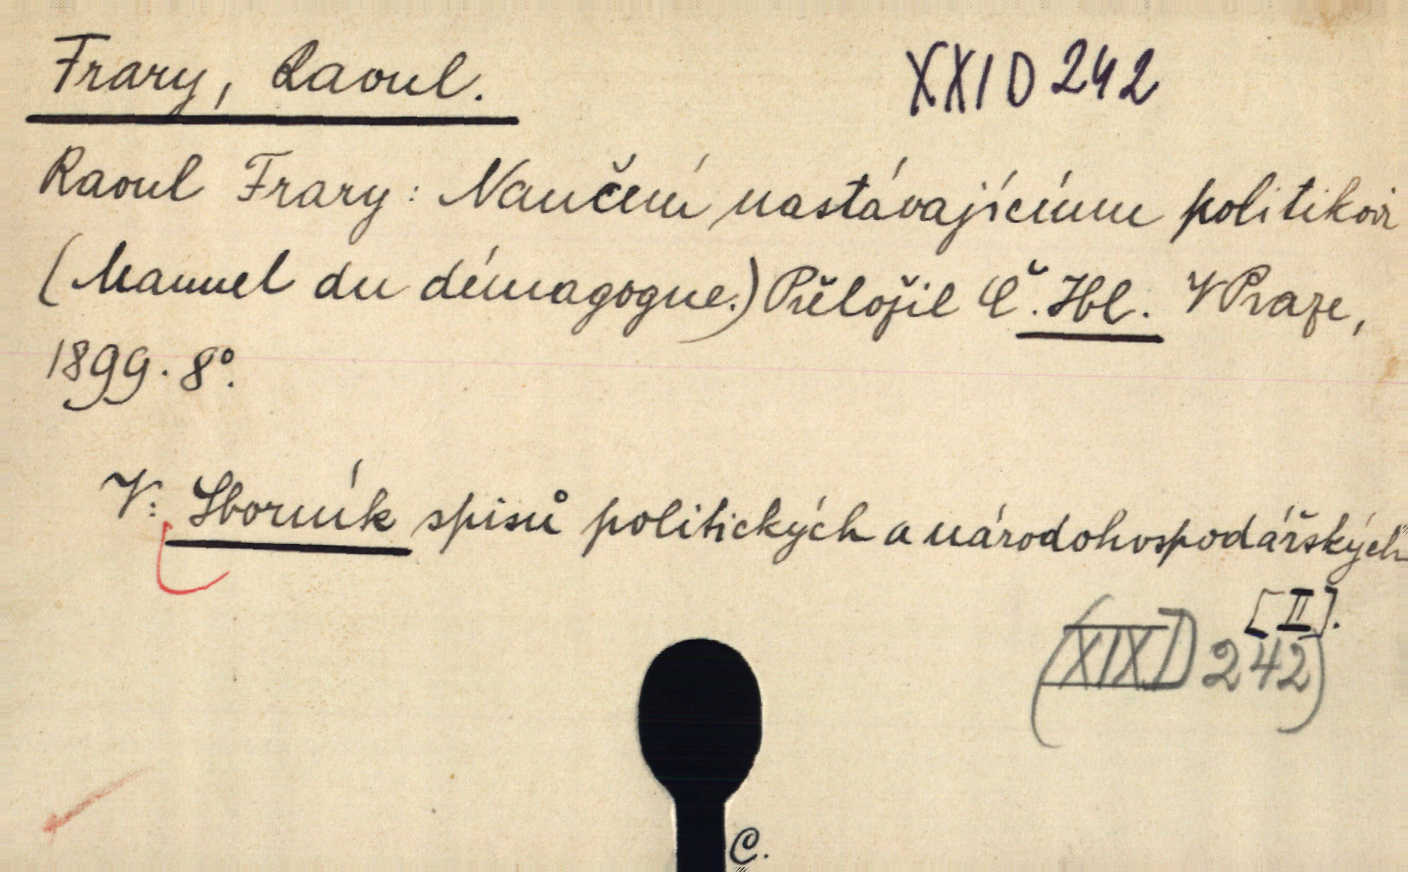 Frary, Raoul.
XXI D 242
Raoul Frary: Naučení nastávajícímu politikovi
(Manuel du démagogue.) Přeložil Č. Hbl. V Praze,
1899. 8°.
V: Sborník spisů politických a národohospodářských
[II].
(XIX D 242)
C.